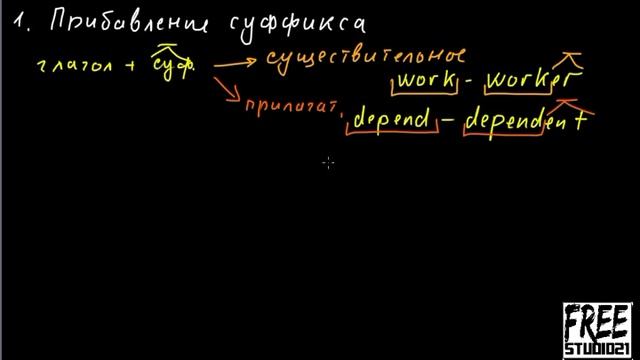 1. Прибавление суффикса
глагол + суф. → существительное
work - worker
прилагат. depend - dependent
FREE
STUDIO21